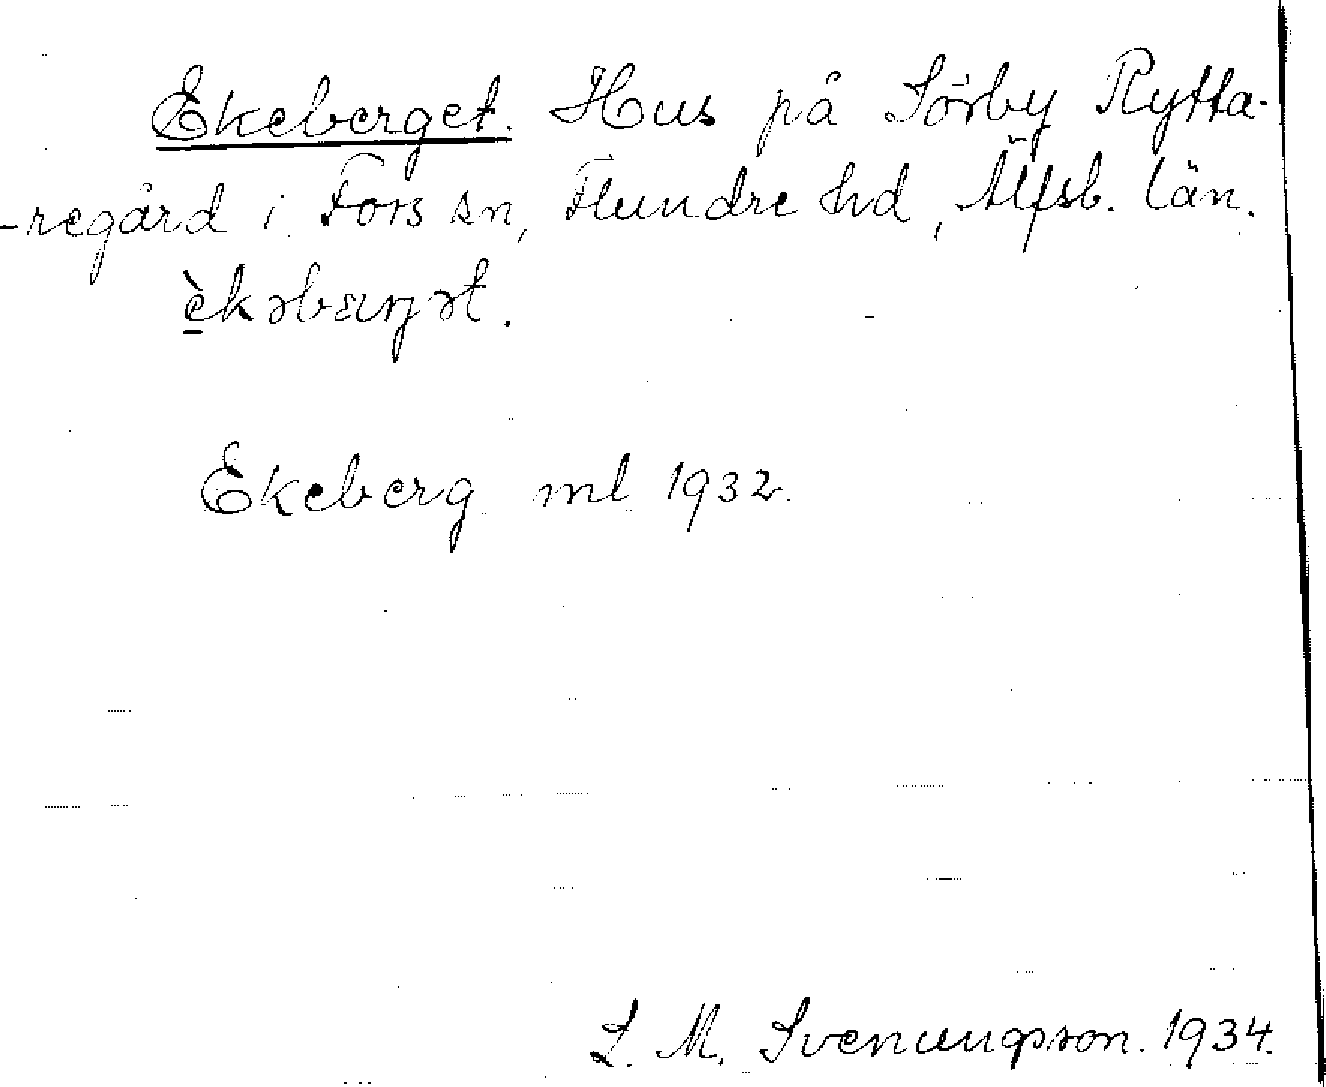 Ekeberget. Hus på Sörby Rytta-
-regård i Fors sn, Flundre hd, Älfsb. län.
Ekeberg ml 1932.
S. M. Svenungson. 1934.